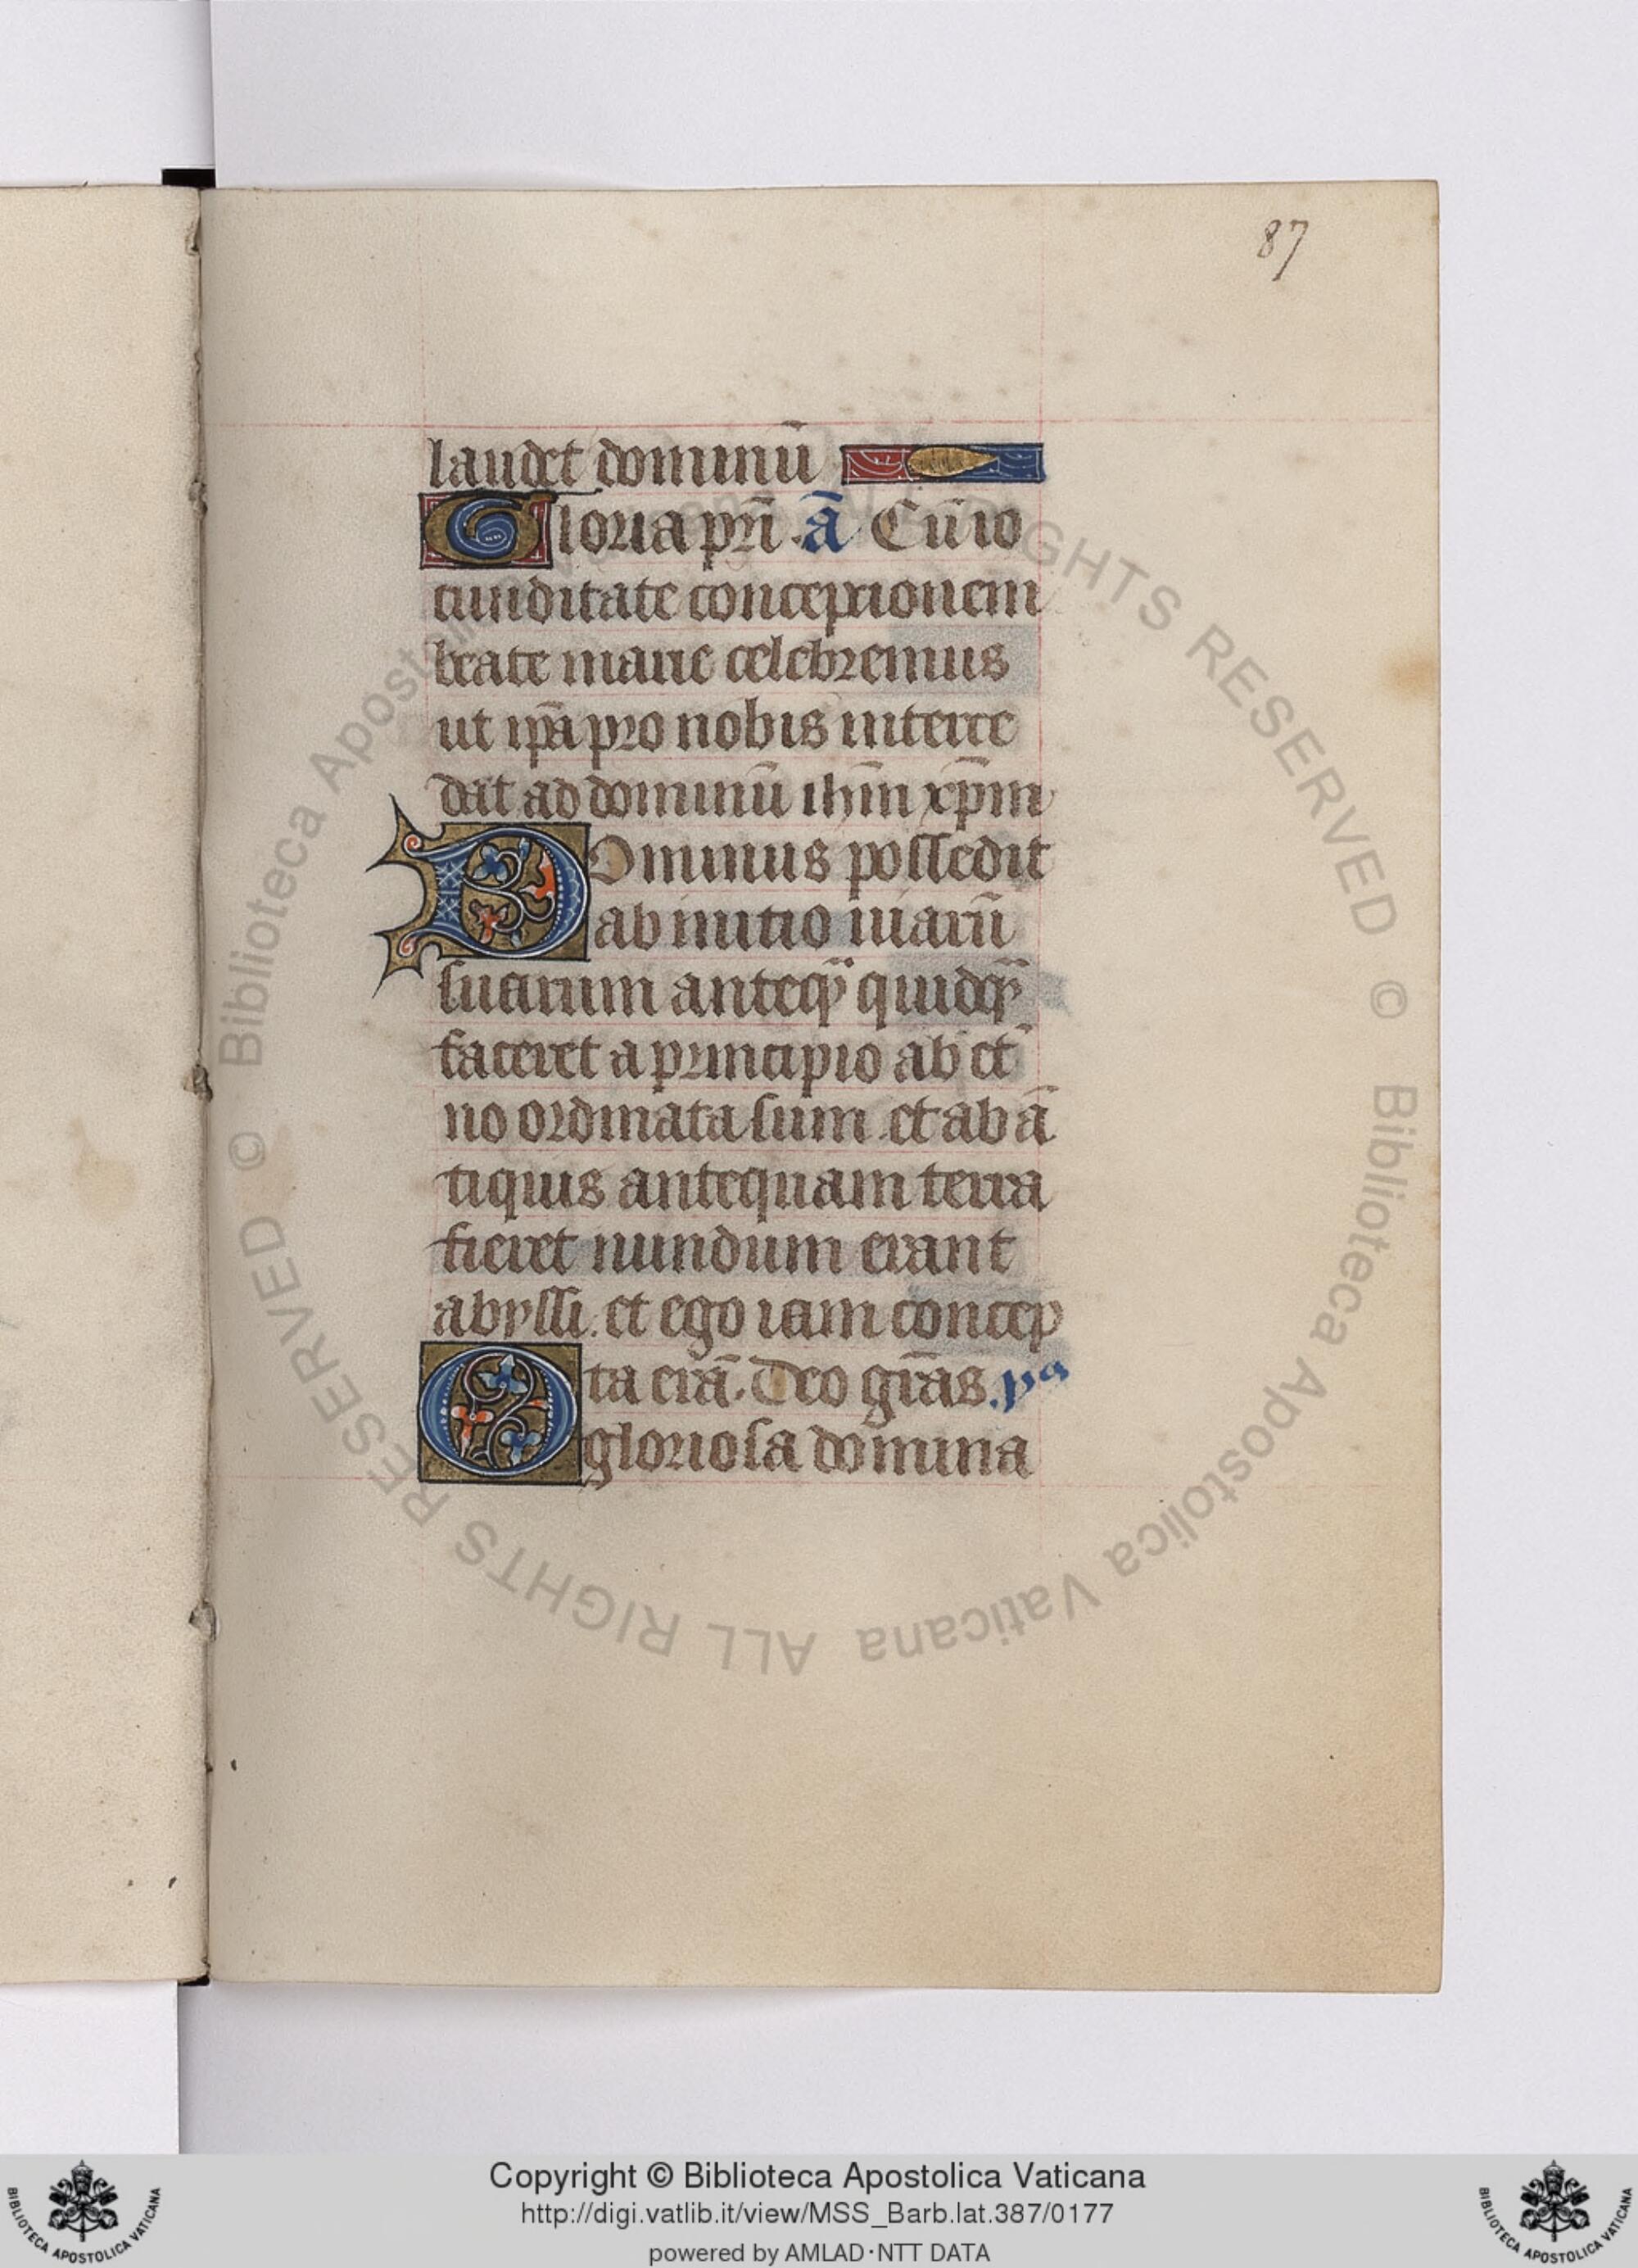 87
laudet dominū
Gloria pr̄i. ā Cū io
cunditate conceptionem
beate marie celebremus
ut ip̄a pro nobis interce
dat ad dominū ihm̄ xp̄m
Dominus possedit
ab initio uiarū
suarum anteqͣ quidqͣ
faceret a principio ab et̄
no ordinata sum et ab ā
tiquis antequam terra
fieret nundum erant
abyssi. et ego iam concep
ta erā. Deo gr̄as. ps
O gloriosa domina
© Biblioteca Apostolica Vaticana ALL RIGHTS RESERVED © Biblioteca Apostolica Vaticana ALL RIGHTS RESERVED
Copyright © Biblioteca Apostolica Vaticana
http://digi.vatlib.it/view/MSS_Barb.lat.387/0177
powered by AMLAD·NTT DATA
BIBLIOTECA APOSTOLICA VATICANA
BIBLIOTECA APOSTOLICA VATICANA